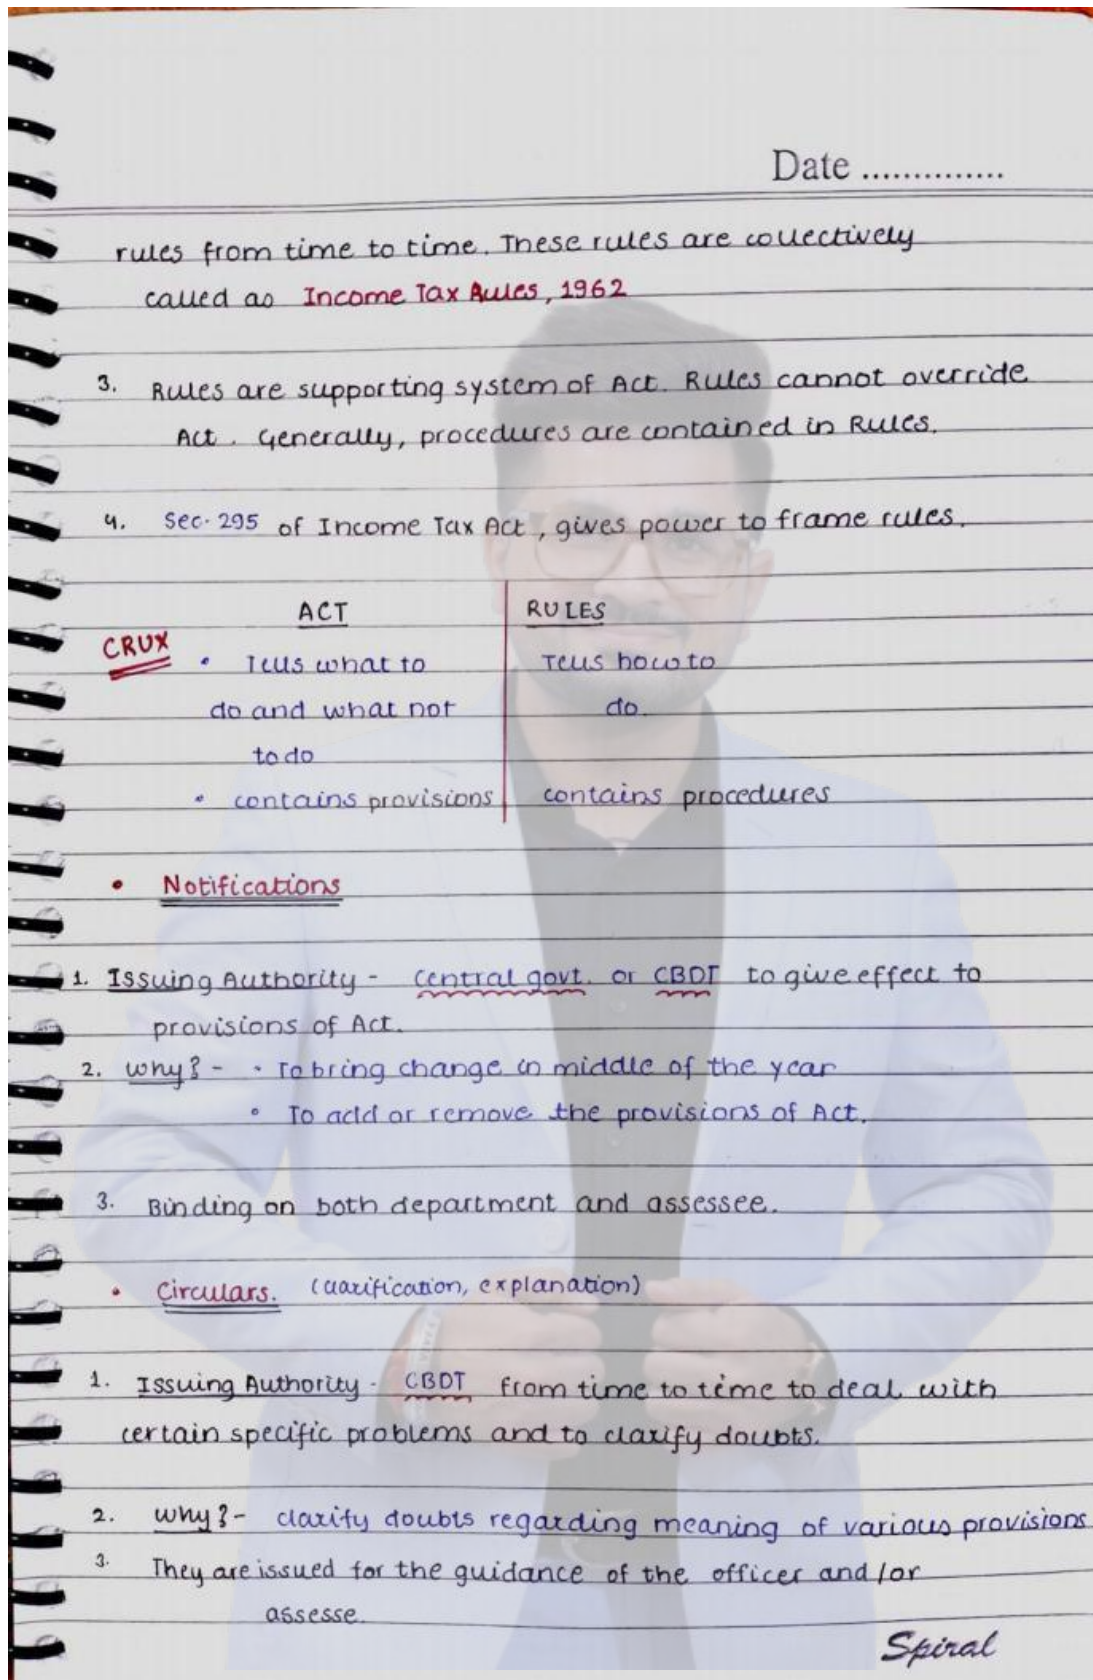 Date ..............
rules from time to time. These rules are collectively
called as Income Tax Rules, 1962
3. Rules are supporting system of Act. Rules cannot override
Act. Generally, procedures are contained in Rules.
4. Sec. 295 of Income Tax Act, gives power to frame rules.
ACT RULES
CRUX • Tells what to Tells how to
do and what not do.
to do
• contains provisions contains procedures
• Notifications
1. Issuing Authority - Central govt. or CBDT to give effect to
provisions of Act.
2. Why? - • To bring change in middle of the year
• To add or remove the provisions of Act.
3. Binding on both department and assessee.
• Circulars. (clarification, explanation)
1. Issuing Authority - CBDT from time to time to deal with
certain specific problems and to clarify doubts.
2. Why? - clarify doubts regarding meaning of various provisions
3. They are issued for the guidance of the officer and/or
assesse.
Spiral